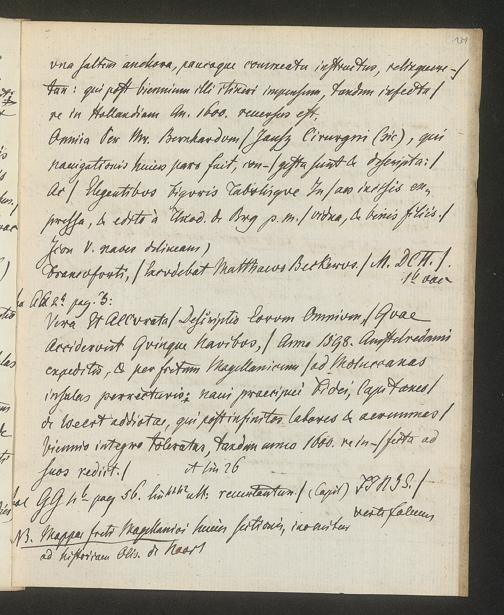 131
vna saltim anchora, paucoque commeatu instructus, relinquere-/
tur: qui post biennium illi itineri impensum, tandem infecta/
re in Hollandiam An. 1600. reversus est.
Omnia Per Mr. Bernhardum/ Jansz Cirurgni (sic), qui
navigationis huius pars fuit, con-/gesta sunt & descripta:/
Ac/ Elegentibus figuris Tabulisque In/aes incisis ex-
pressa, & edita à Theod. de Bry p. m./ vidua, & binis filiis./
(Icon V. naves delineans)
Francoforti,/ Excudebat Matthaeus Beckerus./ M. DCII./.
1ª vac
AA 2ª pag. 3:
Vera Et Accvrata/ Descriptio Eorum Omnium,/ Quae
Acciderunt Quinque Navibus,/ Anno 1598. Amstelredami
expeditis, & per fretum Magellanicum/ ad Moluccanas
insulas perrecturis: navi praecipue Fidei, Capitaneo/
de Weert addictae, qui post infinitos labores & aerumnas/
biennio integro toleratas, tandem anno 1600. re in-/fecta ad
suos rediit./ it lin 26
GG pag 56. ult: recusantur/ (Capit) FINIS./
verte folium
NB. Mappa freti Magellanici huius sectionis, invenitur
ad historiam Oliv. de Noort